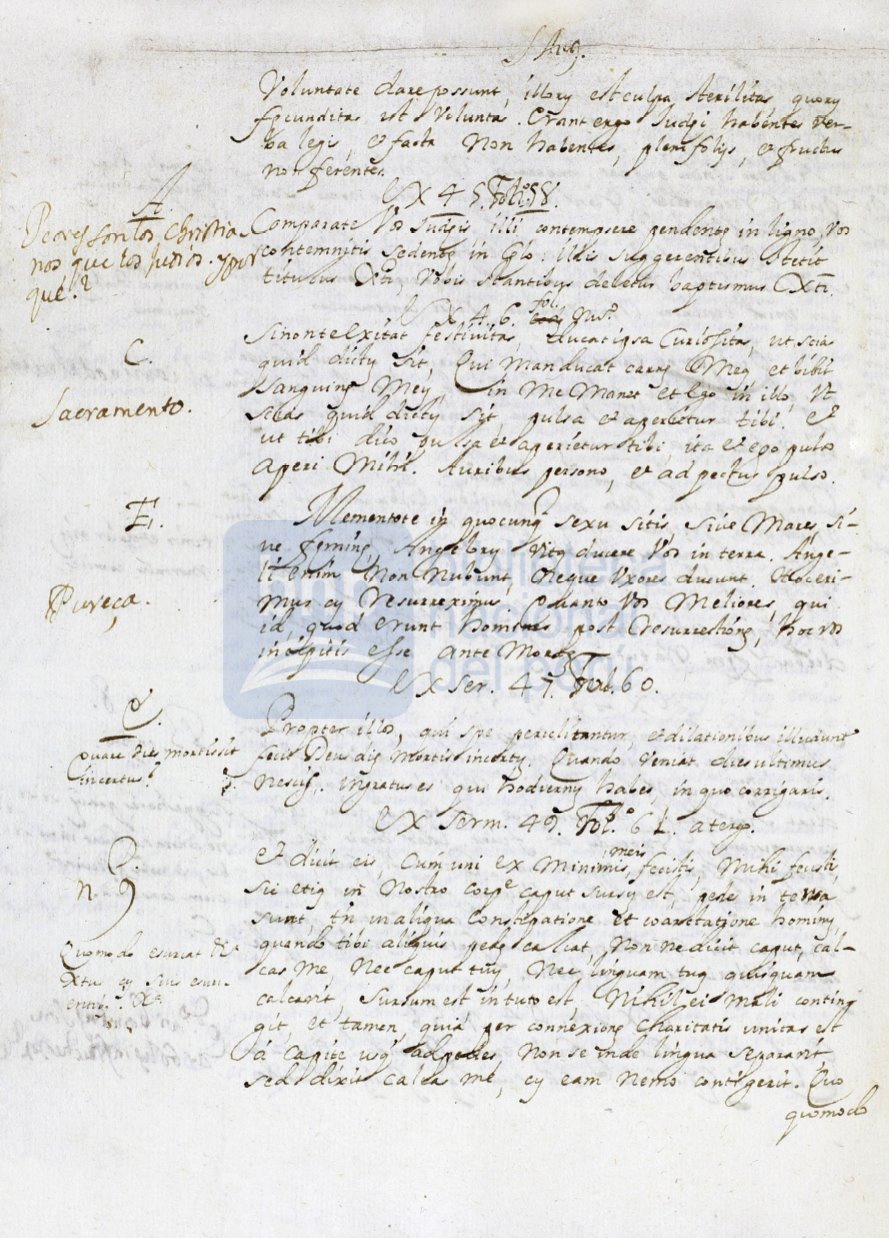 S. Aug.
Voluntate dare possunt, illorũ est culpa sterilitas, quorũ
fęcunditas est Voluntas. Erant ergo Judęi habentes ver-
ba legis, et facta Non habentes, pleni folijs, et fructus
non ferentes.
EX 45. Folio. 58.
A
Peores son los christia
nos, que los judios. y por
que?
Comparate Vos Judęis, illi contempsere pendentẽ in ligno, Vos
contemnitis sedentẽ in Cęlo: illis suggerentibus stetit
titulus Xti, Vobis stantibus deletur baptismus Xti.
EX 46. fol. Nusq̃
C.
Sacramento.
Si non te excitat festivitas, ducat ipsa Curiositas, ut scias
quid dictũ sit, Qui Manducat carnẽ Meã, et bibit
Sanguinẽ Meũ, in Me Manet et Ego in illo, Vt
scias quid dictũ sit, pulsa et aperietur tibi. Et
ut tibi dico pulsa et aperietur tibi, ita et ego pulso
Aperi Mihi. Auribus persono, et ad pectus pulso.
E.
Pureça.
Mementote in quocunq̃ sexu sitis, sive Mares, si-
ve fęminę, Angelorũ Vitã ducere Vos in terra. Ange-
li enim Non Nubunt, Neque Vxores ducunt. Hoc eri-
mus cũ Resurreximus. Quanto Vos Meliores, qui
id, quod erunt homines post resurrectionẽ, hoc vos
incipitis esse ante Mortẽ.
EX Ser. 47. Fol. 60.
Q.
Quare dies mortis sit
incertus?
Propter illos, qui spe periclitantur, et dilationibus illudunt
fecit Deus diẽ Mortis incertũ. Quando Veniat dies ultimus
Nescis. ingratus es qui hodiernũ habes, in quo corrigaris.
EX Serm. 49. Fol. 61. a tergo.
Q.
n. 9
Quomodo esuriat
Xtus cũ suis esuri-
entib.
Et dicit eis, Cum uni ex Minimis meis fecistis, Mihi fecistis,
Sic etiã in Nostro corpe caput sursũ est, pedes in terra
sunt, tñ in aliqua Constipatione et coarctatione hominũ,
quando tibi aliquis pedẽ calcat, Non ne dicit caput, cal-
cas Me, Nec caput tuũ, Nec linguam tuã quisquam
calcavit, Sursum est, in tuto est, Nihil ei Mali contin
git, et tamen, quia per connexionẽ Charitatis unitas est
á Capite usq̃ ad pedes, Non se inde lingua separavit
sed dixit calcas me, cũ eam Nemo contigerit. Quo
quomodo